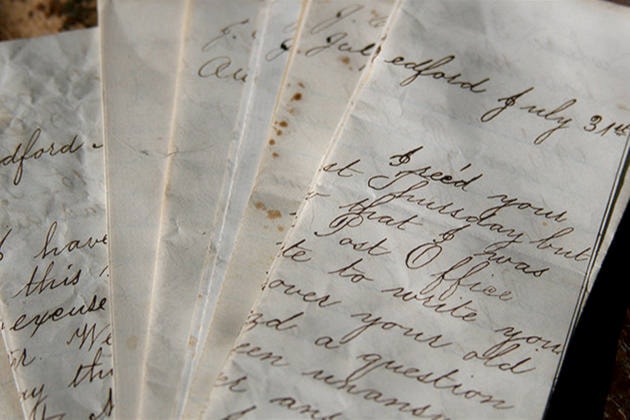 dford
I have
this
excuse
r. We
ay thi
Au
edford July 31st
I rec'd your
st Thursday but
r that I was
Post Office
te to write you
over your old
nd a question
een unansw
er an